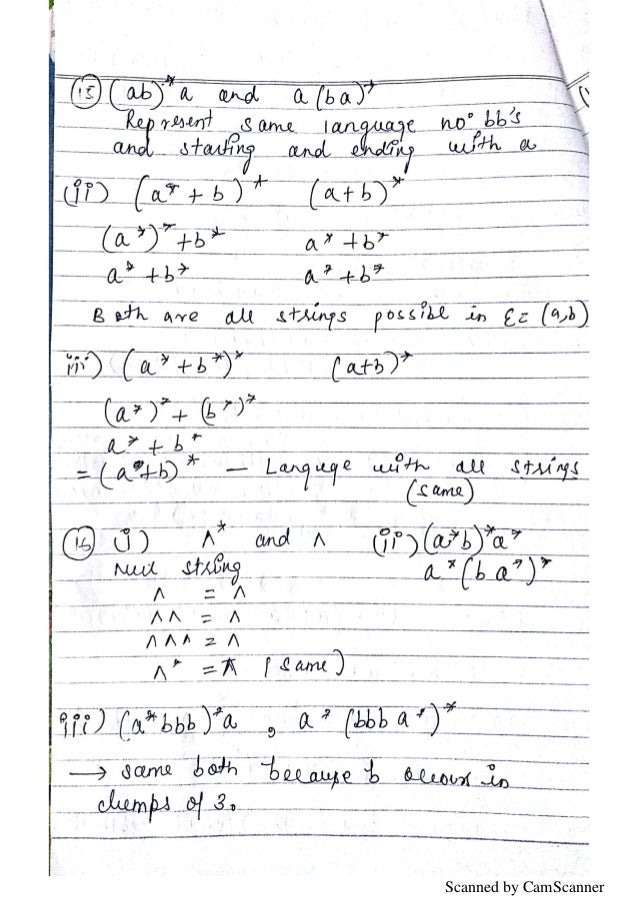 (15) (ab)*a and a(ba)*
Represent same language no bb's
and starting and ending with a
(ii) (a* + b)* (a+b)*
(a*)* + b* a* + b*
a* + b* a* + b*
Both are all strings possible in ε = (a,b)
iii) (a* + b*)* (a+b)*
(a*)* + (b*)*
a* + b*
= (a*+b)* — Languge with all strings
(same)
(16) (i) Λ* and Λ (ii) (a*b)*a*
Null string a*(ba*)*
Λ = Λ
ΛΛ = Λ
ΛΛΛ = Λ
Λ* = Λ (same)
iii) (a*bbb)*a , a*(bbba*)*
→ same both because b occurs in
clumps of 3.
Scanned by CamScanner